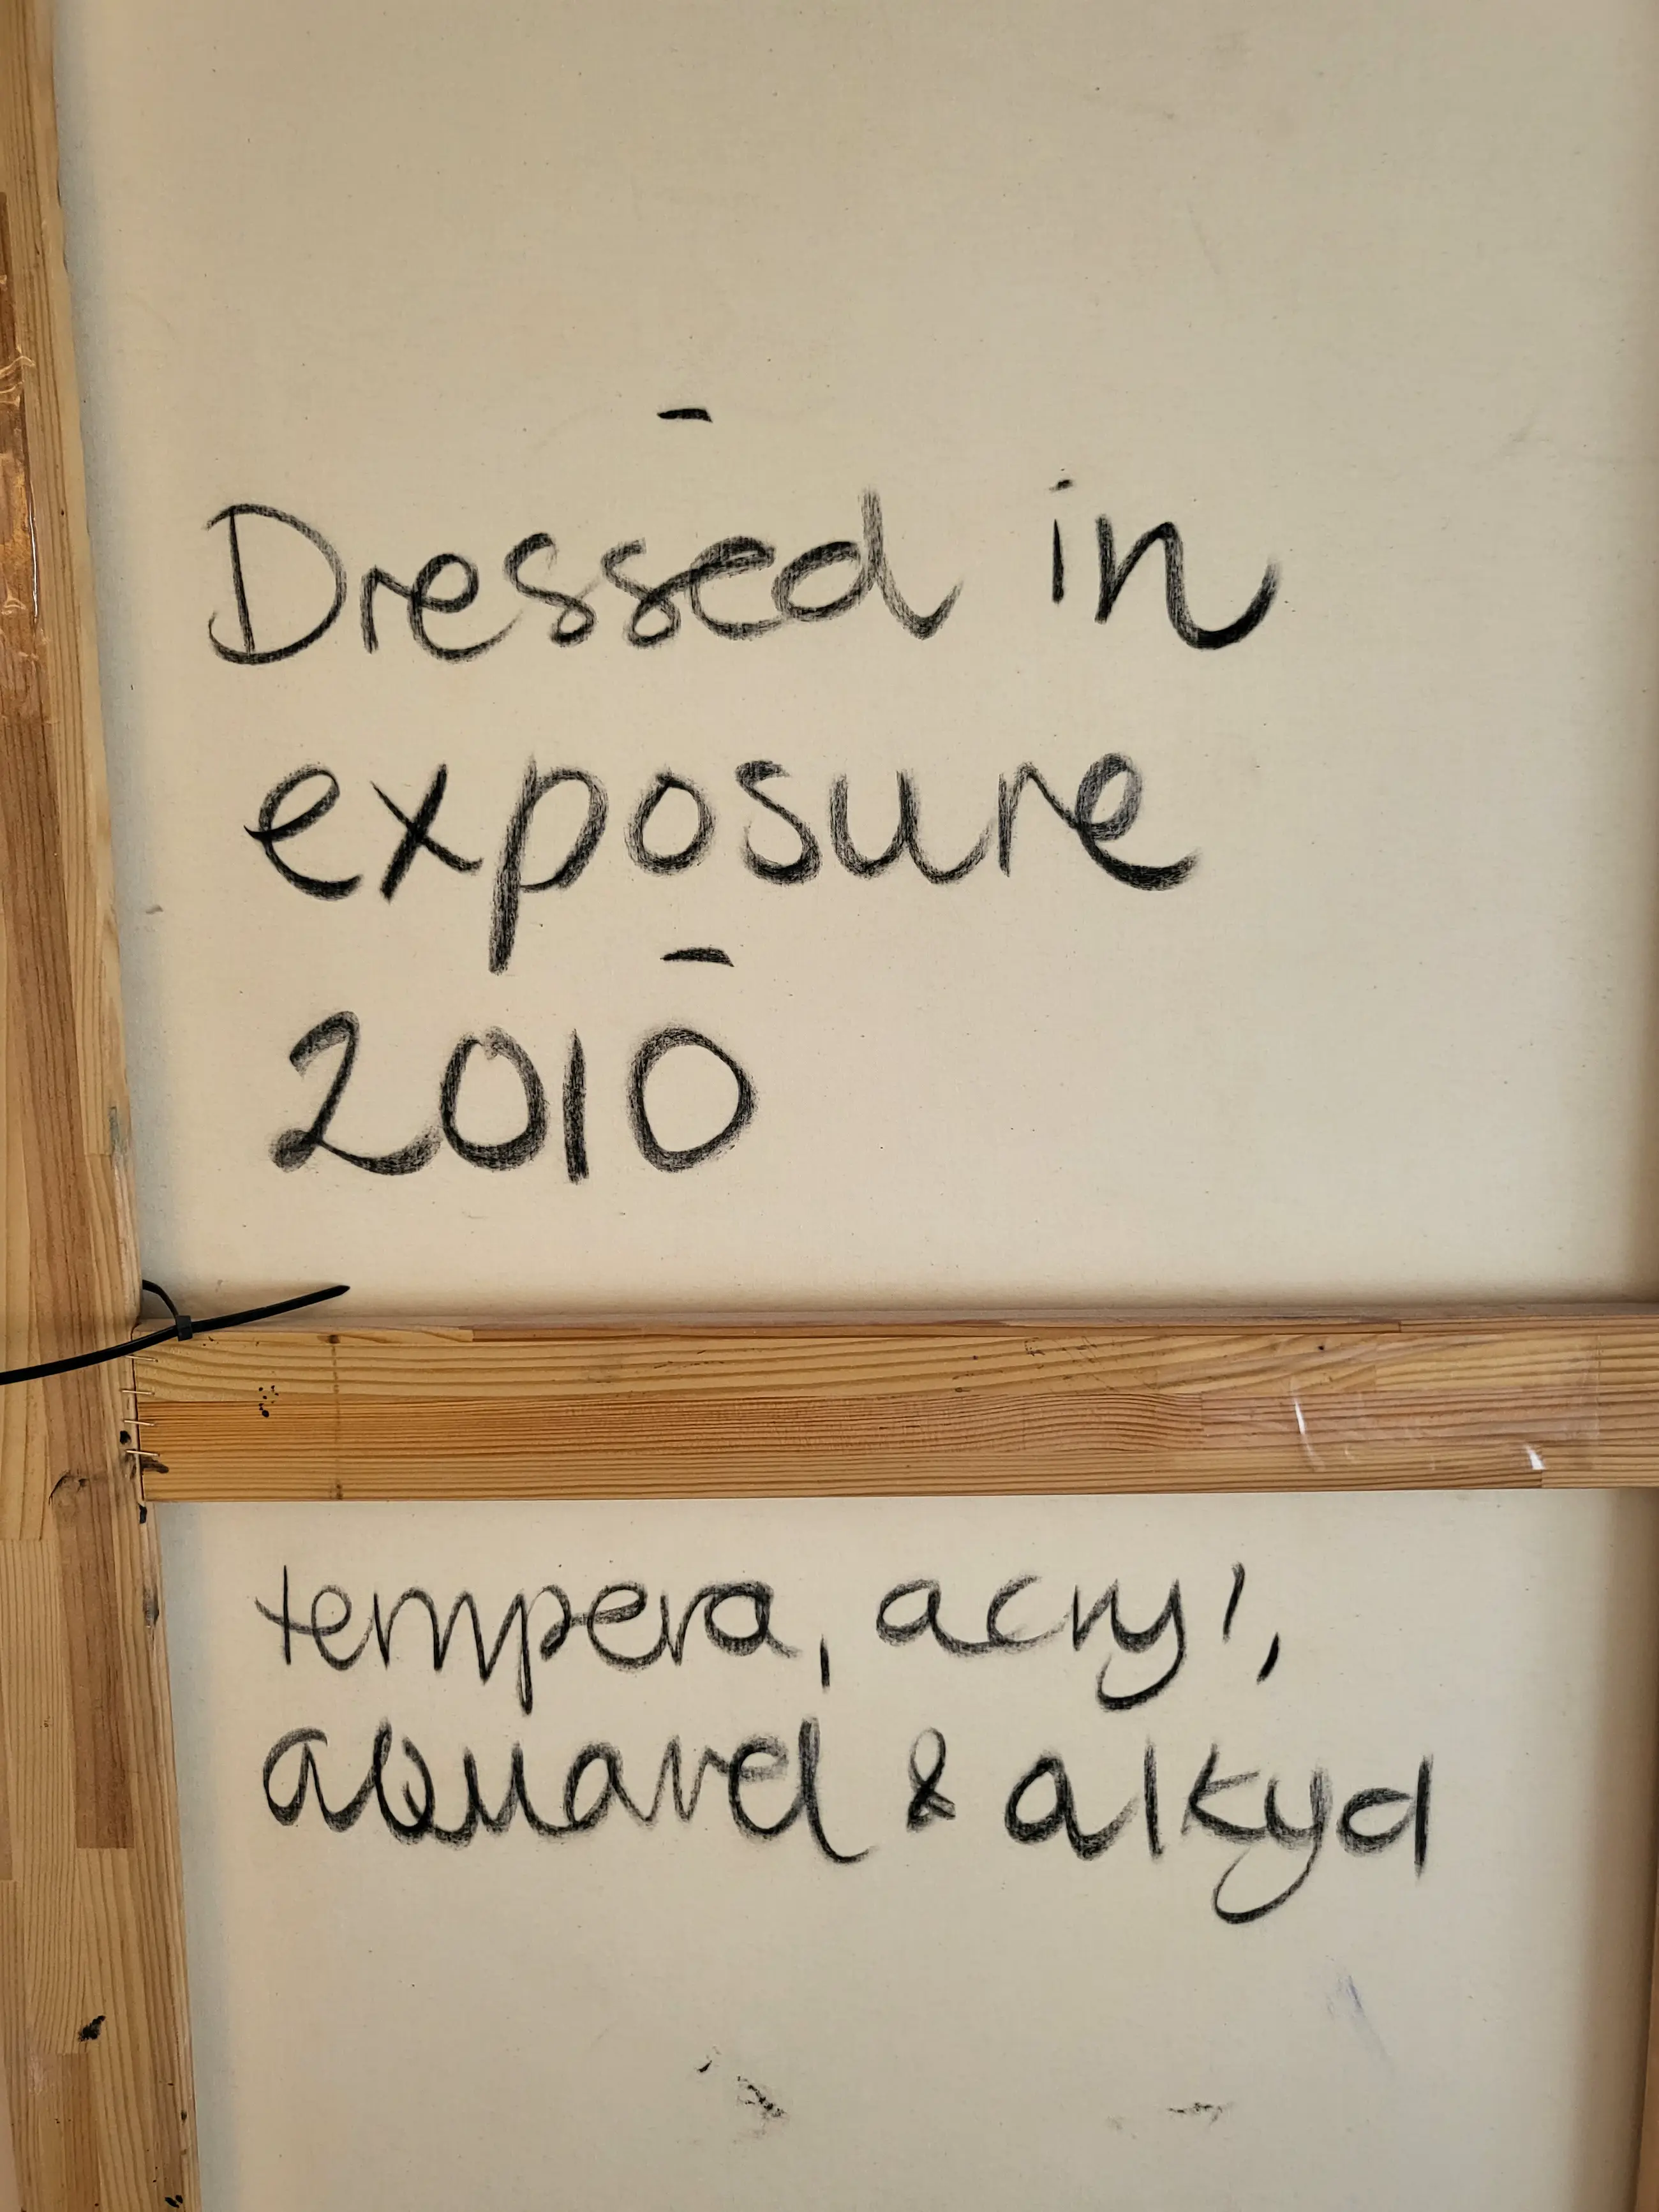 -
Dressed in
exposure
-
2010
tempera, acryl,
aquarel & alkyd